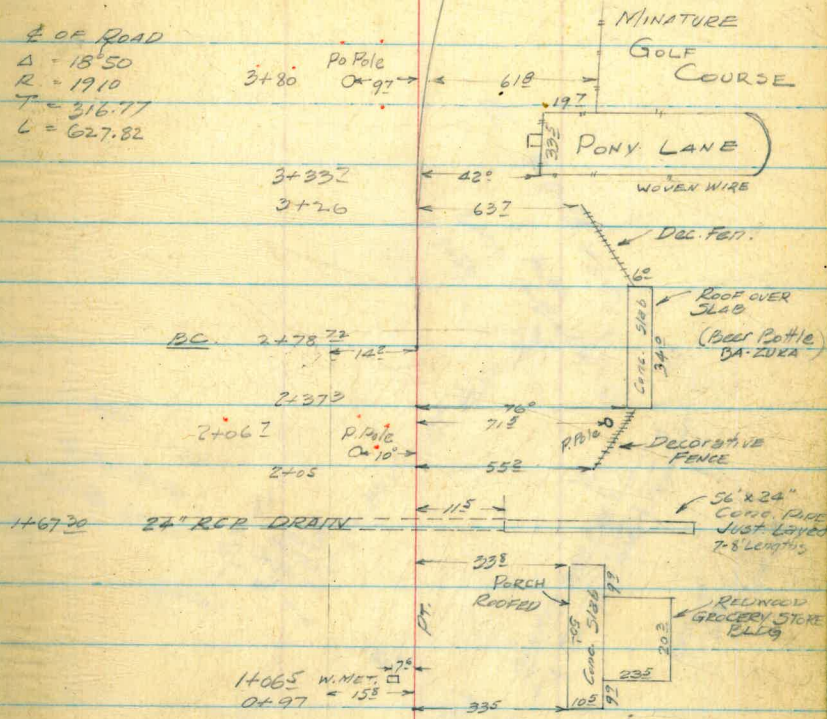 ℄ OF ROAD
Δ = 18°50
R = 1910
T = 316.77
L = 627.82
MINATURE
GOLF
COURSE
3+80
Po Pole
9⁷
61⁸
19⁷
33⁵
PONY LANE
WOVEN WIRE
3+33²
42⁰
3+26
63⁷
Dec. Fen.
6⁰
ROOF OVER
SLAB
Conc. Slab
34⁰
(Beer Bottle)
BA-ZUKA
B.C. 2+78.72
14²
2+37³
76⁰
71⁵
2+06²
P. Pole
10⁰
P. Pole
Decorative
FENCE
2+05
55²
11⁵
1+67.30
24" RCP DRAIN
56' x 24"
Conc. Pipe
Just Layed
7-8' Lengths
33⁸
PORCH
ROOFED
Conc. Slab
9⁹
REDWOOD
GROCERY STORE
BLDG
20³
23⁵
9⁹
10⁵
P.T.
7⁶
1+06⁵ W.MET.
15⁸
0+97
33⁵